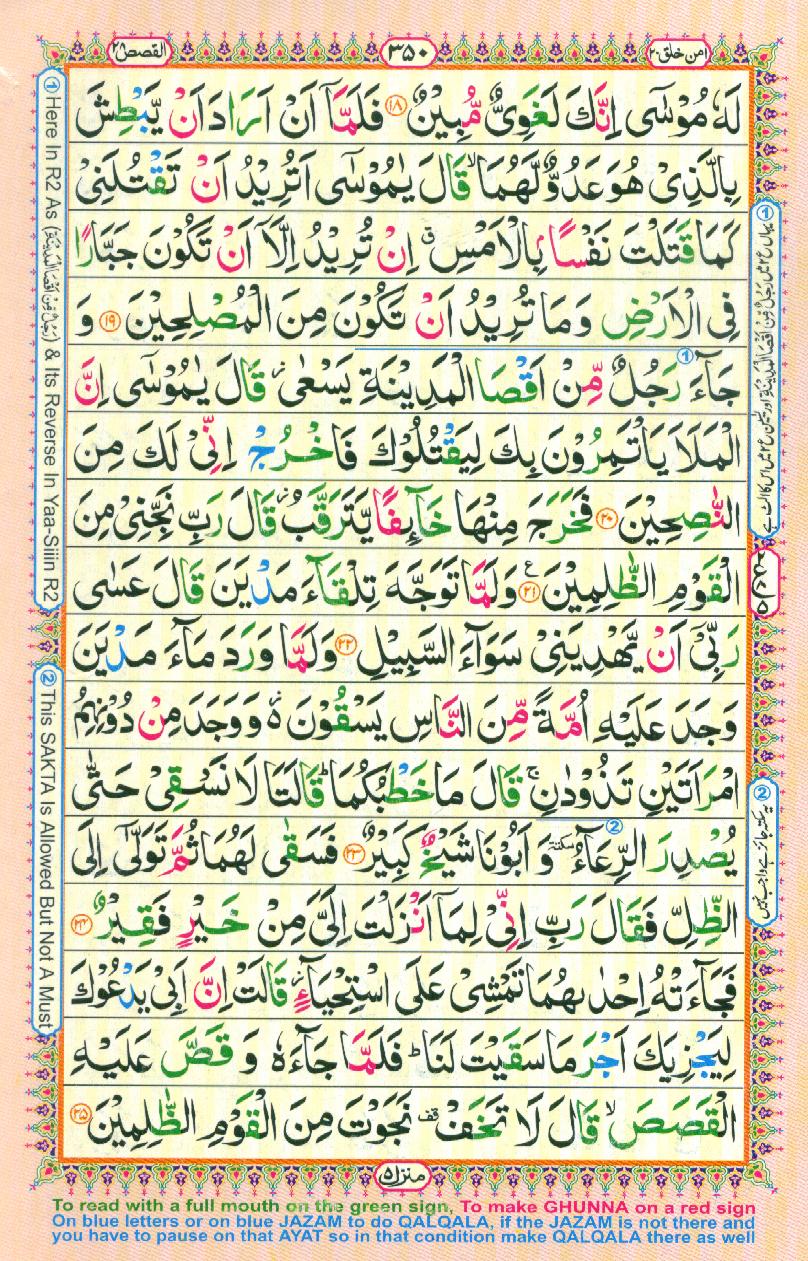 امن خلق ٢٠
٣٥٠
القصص ٢٨
لَهٗ مُوْسٰۤى اِنَّكَ لَغَوِىٌّ مُّبِيْنٌ ﴿١٨﴾ فَلَمَّاۤ اَنْ اَرَادَ اَنْ يَّبْطِشَ
بِالَّذِىْ هُوَ عَدُوٌّ لَّهُمَا ۙ قَالَ يٰمُوْسٰٓى اَتُرِيْدُ اَنْ تَقْتُلَنِىْ
كَمَا قَتَلْتَ نَفْسًاۢ بِالْاَمْسِ ۖ اِنْ تُرِيْدُ اِلَّاۤ اَنْ تَكُوْنَ جَبَّارًا
فِى الْاَرْضِ وَمَا تُرِيْدُ اَنْ تَكُوْنَ مِنَ الْمُصْلِحِيْنَ ﴿١٩﴾ وَ
جَآءَ رَجُلٌ مِّنْ اَقْصَا الْمَدِيْنَةِ يَسْعٰى ۫ قَالَ يٰمُوْسٰٓى اِنَّ
الْمَلَاَ يَاْتَمِرُوْنَ بِكَ لِيَقْتُلُوْكَ فَاخْرُجْ اِنِّىْ لَكَ مِنَ
النّٰصِحِيْنَ ﴿٢٠﴾ فَخَرَجَ مِنْهَا خَآئِفًا يَّتَرَقَّبُ ۫ قَالَ رَبِّ نَجِّنِىْ مِنَ
الْقَوْمِ الظّٰلِمِيْنَ ﴿٢١﴾ ع وَلَمَّا تَوَجَّهَ تِلْقَآءَ مَدْيَنَ قَالَ عَسٰى
رَبِّىْۤ اَنْ يَّهْدِيَنِىْ سَوَآءَ السَّبِيْلِ ﴿٢٢﴾ وَلَمَّا وَرَدَ مَآءَ مَدْيَنَ
وَجَدَ عَلَيْهِ اُمَّةً مِّنَ النَّاسِ يَسْقُوْنَ ۬ وَوَجَدَ مِنْ دُوْنِهِمُ
امْرَاَتَيْنِ تَذُوْدٰنِ ۚ قَالَ مَا خَطْبُكُمَا ؕ قَالَتَا لَا نَسْقِىْ حَتّٰى
يُصْدِرَ الرِّعَآءُ سكتة وَ اَبُوْنَا شَيْخٌ كَبِيْرٌ ﴿٢٣﴾ فَسَقٰى لَهُمَا ثُمَّ تَوَلّٰٓى اِلَى
الظِّلِّ فَقَالَ رَبِّ اِنِّىْ لِمَاۤ اَنْزَلْتَ اِلَىَّ مِنْ خَيْرٍ فَقِيْرٌ ﴿٢٤﴾
فَجَآءَتْهُ اِحْدٰىهُمَا تَمْشِىْ عَلَى اسْتِحْيَآءٍ قَالَتْ اِنَّ اَبِىْ يَدْعُوْكَ
لِيَجْزِيَكَ اَجْرَ مَا سَقَيْتَ لَنَا ؕ فَلَمَّا جَآءَهٗ وَ قَصَّ عَلَيْهِ
الْقَصَصَ ۙ قَالَ لَا تَخَفْ قف نَجَوْتَ مِنَ الْقَوْمِ الظّٰلِمِيْنَ ﴿٢٥﴾
منزل ٥
① Here In R2 As (رَجُلٌ مِّنْ اَقْصَا الْمَدِيْنَةِ) & Its Reverse In Yaa-Siiin R2
② This SAKTA Is Allowed But Not A Must
② یہ سکتہ جائز ہے واجب نہیں
To read with a full mouth on the green sign, To make GHUNNA on a red sign
On blue letters or on blue JAZAM to do QALQALA, if the JAZAM is not there and
you have to pause on that AYAT so in that condition make QALQALA there as well